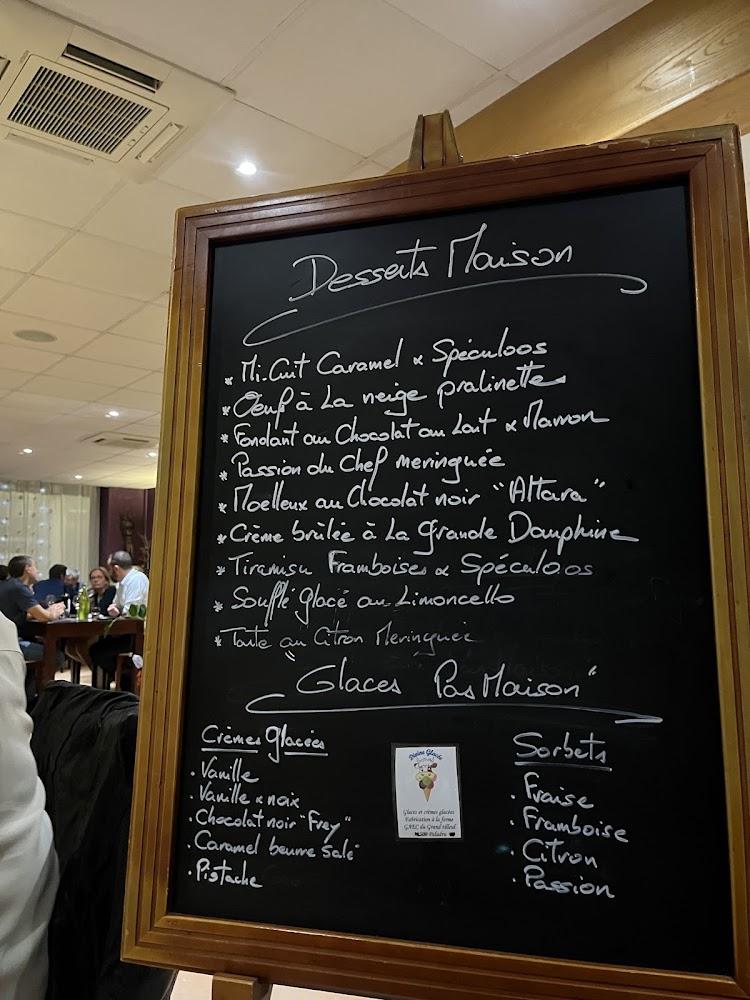 Desserts Maison
* Mi-Cuit Caramel & Spéculoos
* Oeuf à La neige pralinette
* Fondant au Chocolat au Lait & Marron
* Passion du Chef meringuée
* Moelleux au Chocolat noir "Altara"
* Crème brûlée à La Grande Dauphine
* Tiramisu Framboises & Spéculoos
* Soufflé glacé au Limoncello
* Tarte au Citron Meringuée
"Glaces Pas Maison"
Crèmes Glacées
. Vanille
. Vanille & noix
. Chocolat noir "Frey"
. Caramel beurre Salé"
. Pistache
Divine Glacée
Glaces et crèmes glacées
Fabrication à la ferme
GAEC du Grand tilleul
Paladru
Sorbets
. Fraise
. Framboise
. Citron
. Passion